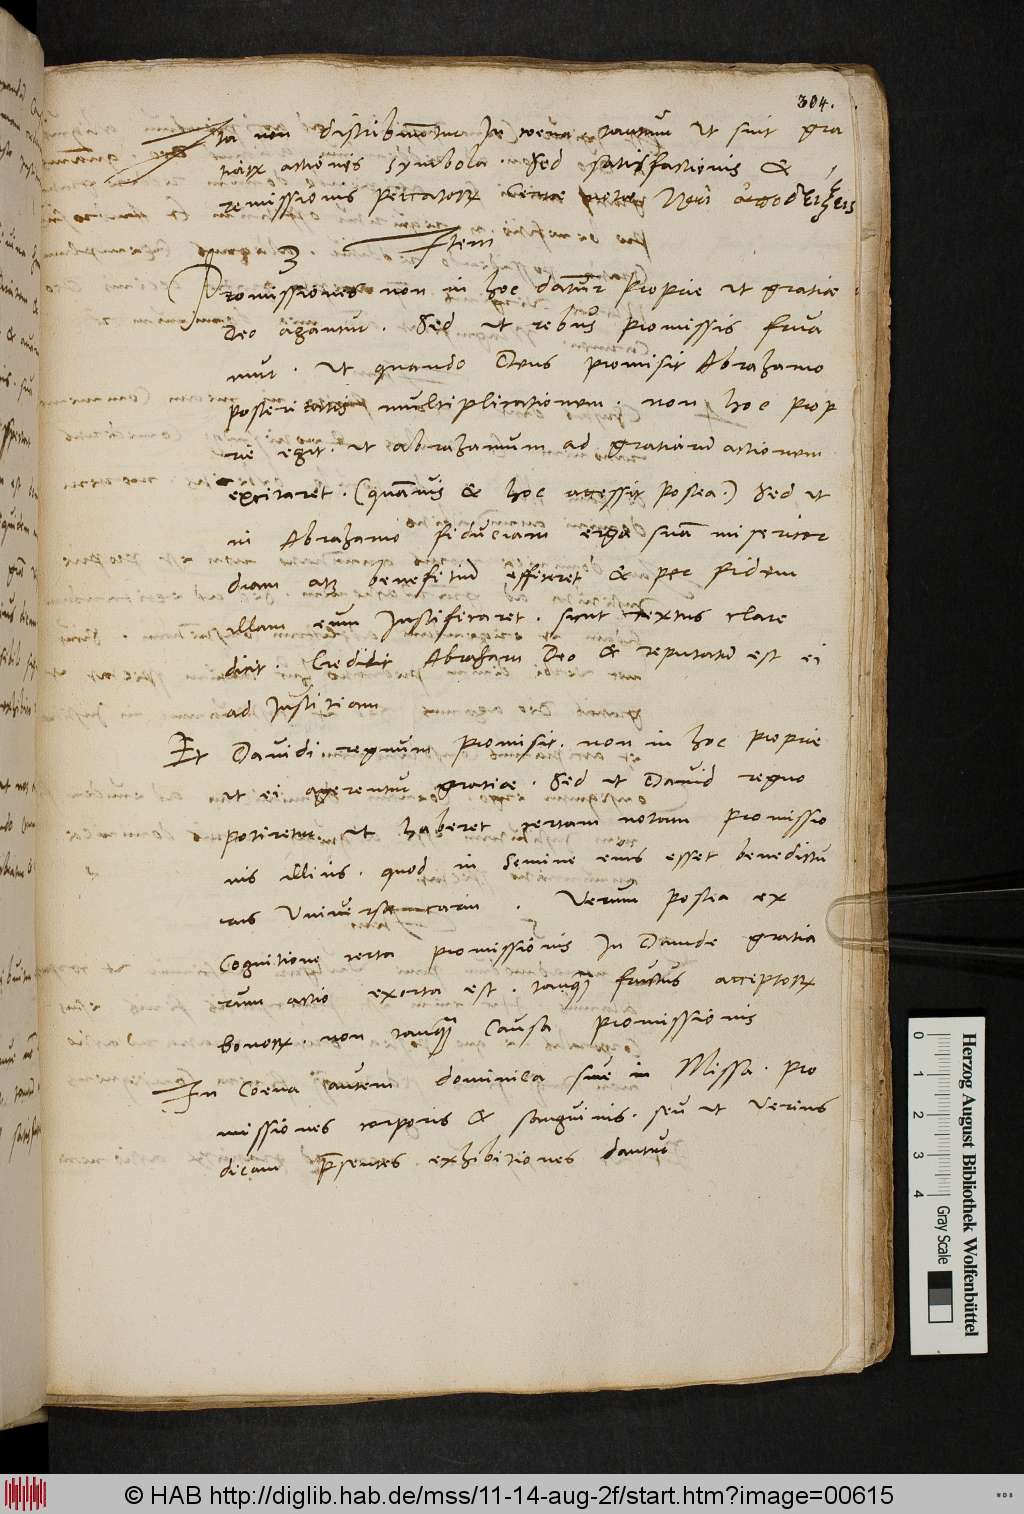 304.
Ita non distribuuntur In coena tantum ut sint gra
tiarꝝ actionis symbola. Sed satisfactionis &
remissionis peccatorꝝ certae notae ἀποδείξεις
3 Item
Promissiones non in hoc dantur proprie ut gratiae
Deo agantur. Sed ut rebus promissis frua
mur. Ut quando Deus promisit Abrahamo
posteritatis multiplicationem. non hoc prop
rie egit. ut abrahamum ad gratiarũ actionem
excitaret. (quamuis & hoc accessit postea.) Sed ut
in Abrahamo fiduciam erga suã misericor
diam atq benefitiũ efficeret & per fidem
illam eum Iustificaret. sicut textus clare
dicit. Credidit Abraham Deo & reputatũ est ei
ad Iustitiam
Et Dauidi regnum promisit. non in hoc proprie
ut ei agerentur gratiae. Sed ut Dauid regno
potiretur ut haberet certam notam promissio
nis illius. quod in semine eius esset benedictu
rus Vniuersam. Verum postea ex
Cognitione certa promissionis In Dauide gratia
rum actio exorta est. tanquã fructus acceptorꝝ
bonorꝝ. non tanquã Causa promissionis
In Coena autem dominica siue in Missa. pro
missiones corporis & sanguinis. seu ut verius
dicam p̃sentes exhibitiones dantur
Herzog August Bibliothek Wolfenbüttel
0 1 2 3 4 Gray Scale
© HAB http://diglib.hab.de/mss/11-14-aug-2f/start.htm?image=00615